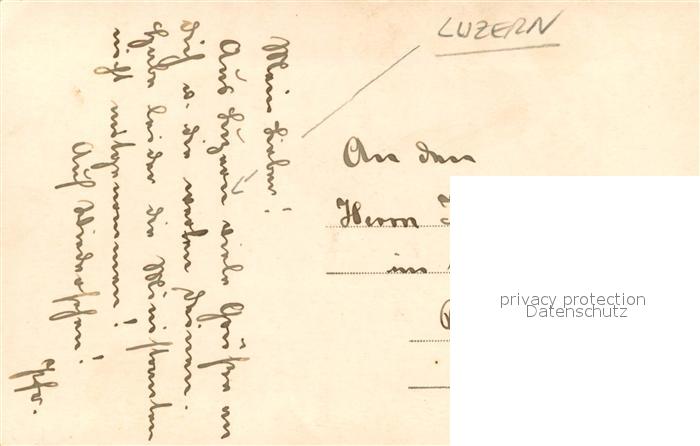 LUZERN
Mein Lieber!
Aus Luzern viele Grüße an
dich u. die werten Deinen.
Habe leider die Ministranten
nicht mitgenommen!
Auf Wiedersehen!
An den
Herrn
im
privacy protection
Datenschutz